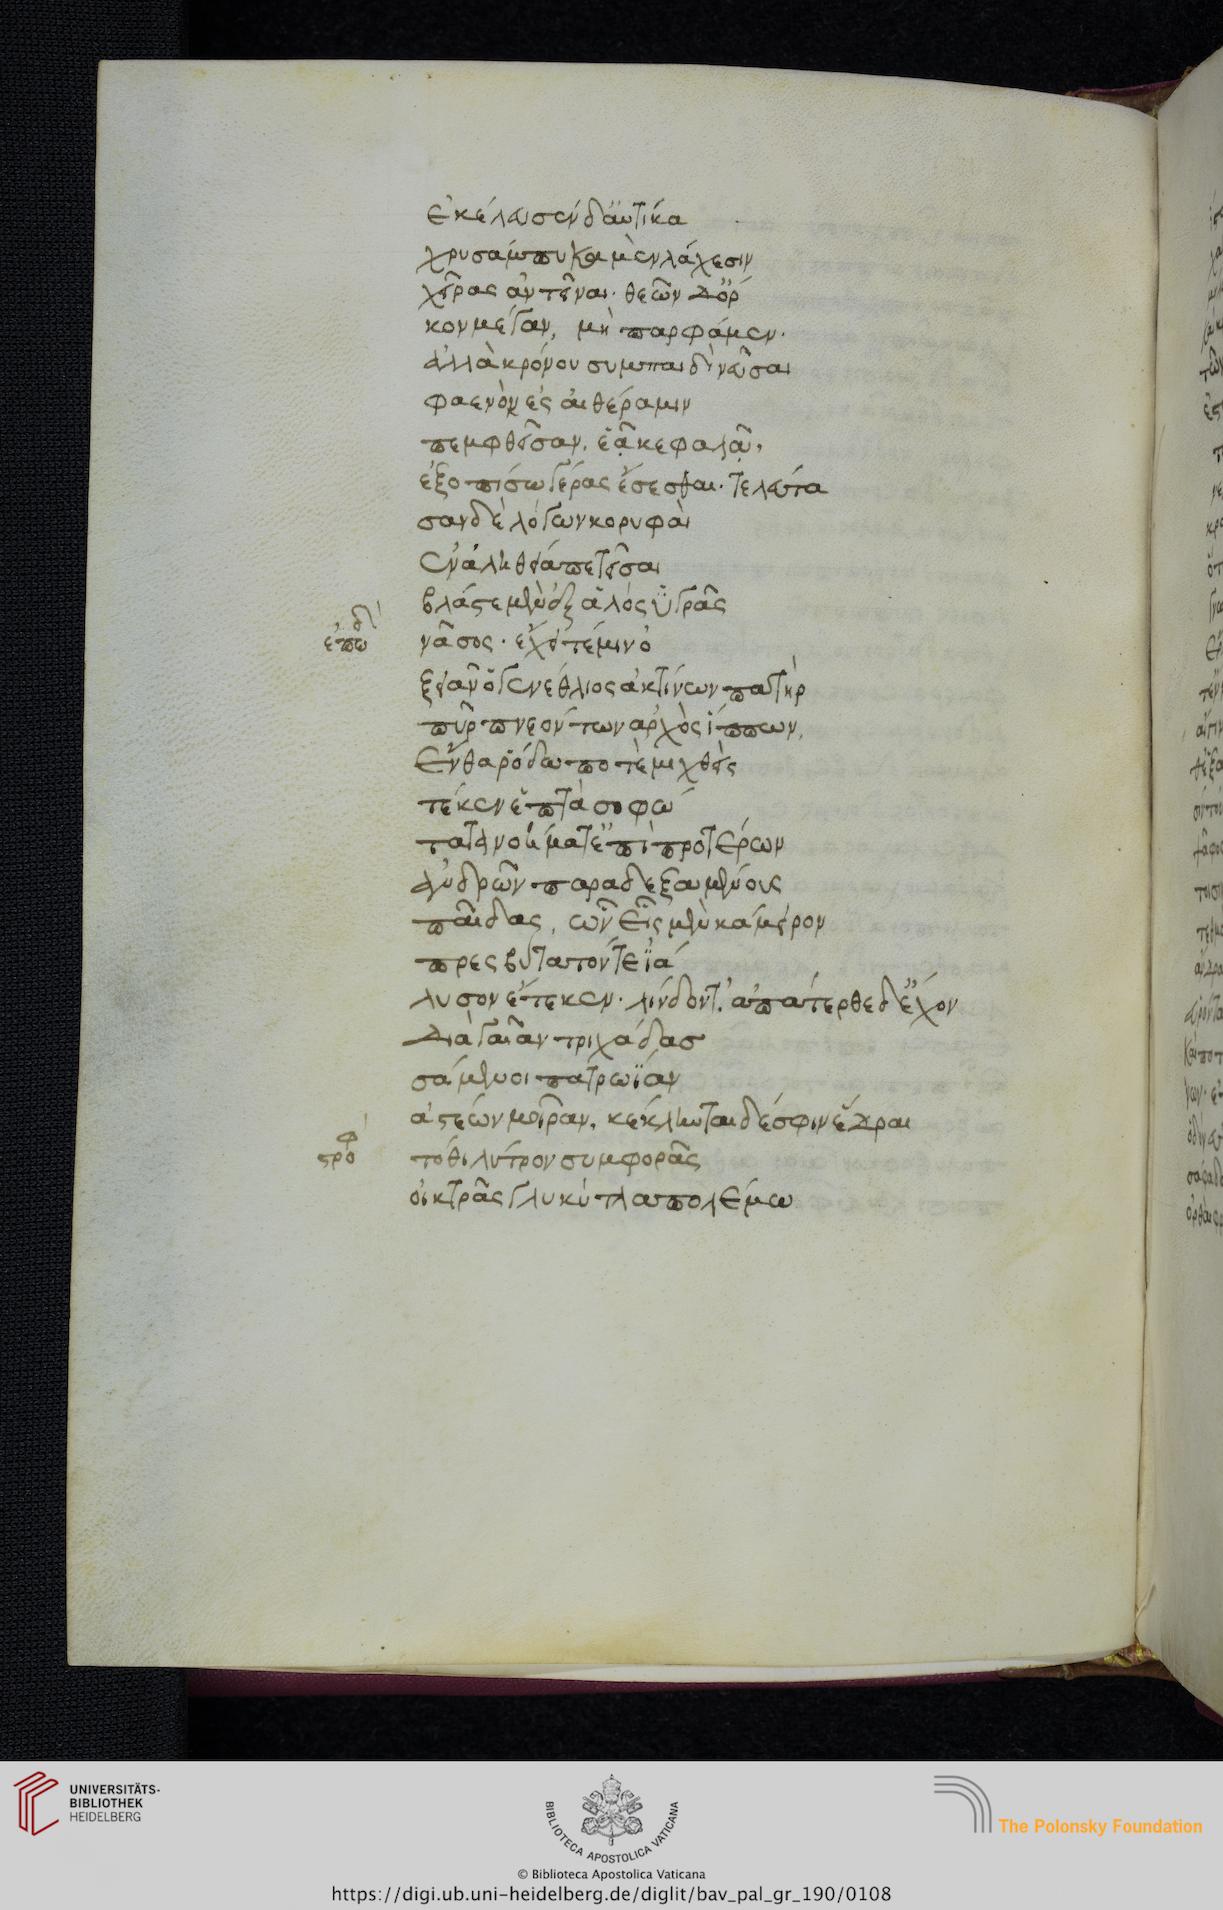 ἐκέλευσεν δ' αὐτίκα
χρυσάμπυκα μὲν λάχεσιν
χεῖρας ἀντεῖναι· θεῶν δ' ὅρ
κον μέγαν, μὴ παρφάμεν·
ἀλλὰ κρόνου συμπαιδὶ νεῦσαι
φαενὸν ἐς αἰθέρα μιν
πεμφθεῖσαν, ἑᾷ κεφαλᾷ,
ἐξοπίσω γέρας ἔσεσθαι· τελεύτα
σαν δὲ λόγων κορυφαὶ
ἐν ἀληθείᾳ πετεῖσαι
βλάστε μὲν ἐξ ἁλὸς ὑγρᾶς
ἐπῳδ
νᾶσος· ἔχει τέ μιν ὀ
ξειᾶν ὁ γενέθλιος ἀκτίνων πατὴρ
πῦρ πνεόντων ἀρχὸς ἵππων,
Ἔνθα ῥόδῳ ποτὲ μιχθεὶς
τέκεν ἑπτὰ σοφώ
τατα νοήματ' ἐπὶ προτέρων
ἀνδρῶν παραδεξαμένους
παῖδας, ὧν Εἷς μὲν κάμειρον
πρεσβύτατόν τε ἰά
λυσον ἔτεκεν· λίνδον τ' ἀπάτερθε δ' ἔχον
Διὰ γαῖαν τρίχα δασ
σάμενοι πατρωΐαν
ἀστέων μοῖραν, κέκληται δέ σφιν ἕδραι
στροφ
τόθι λύτρον συμφορᾶς
οἰκτρᾶς γλυκὺ τλαπολέμῳ
UNIVERSITÄTS-
BIBLIOTHEK
HEIDELBERG
BIBLIOTECA APOSTOLICA VATICANA
The Polonsky Foundation
© Biblioteca Apostolica Vaticana
https://digi.ub.uni-heidelberg.de/diglit/bav_pal_gr_190/0108